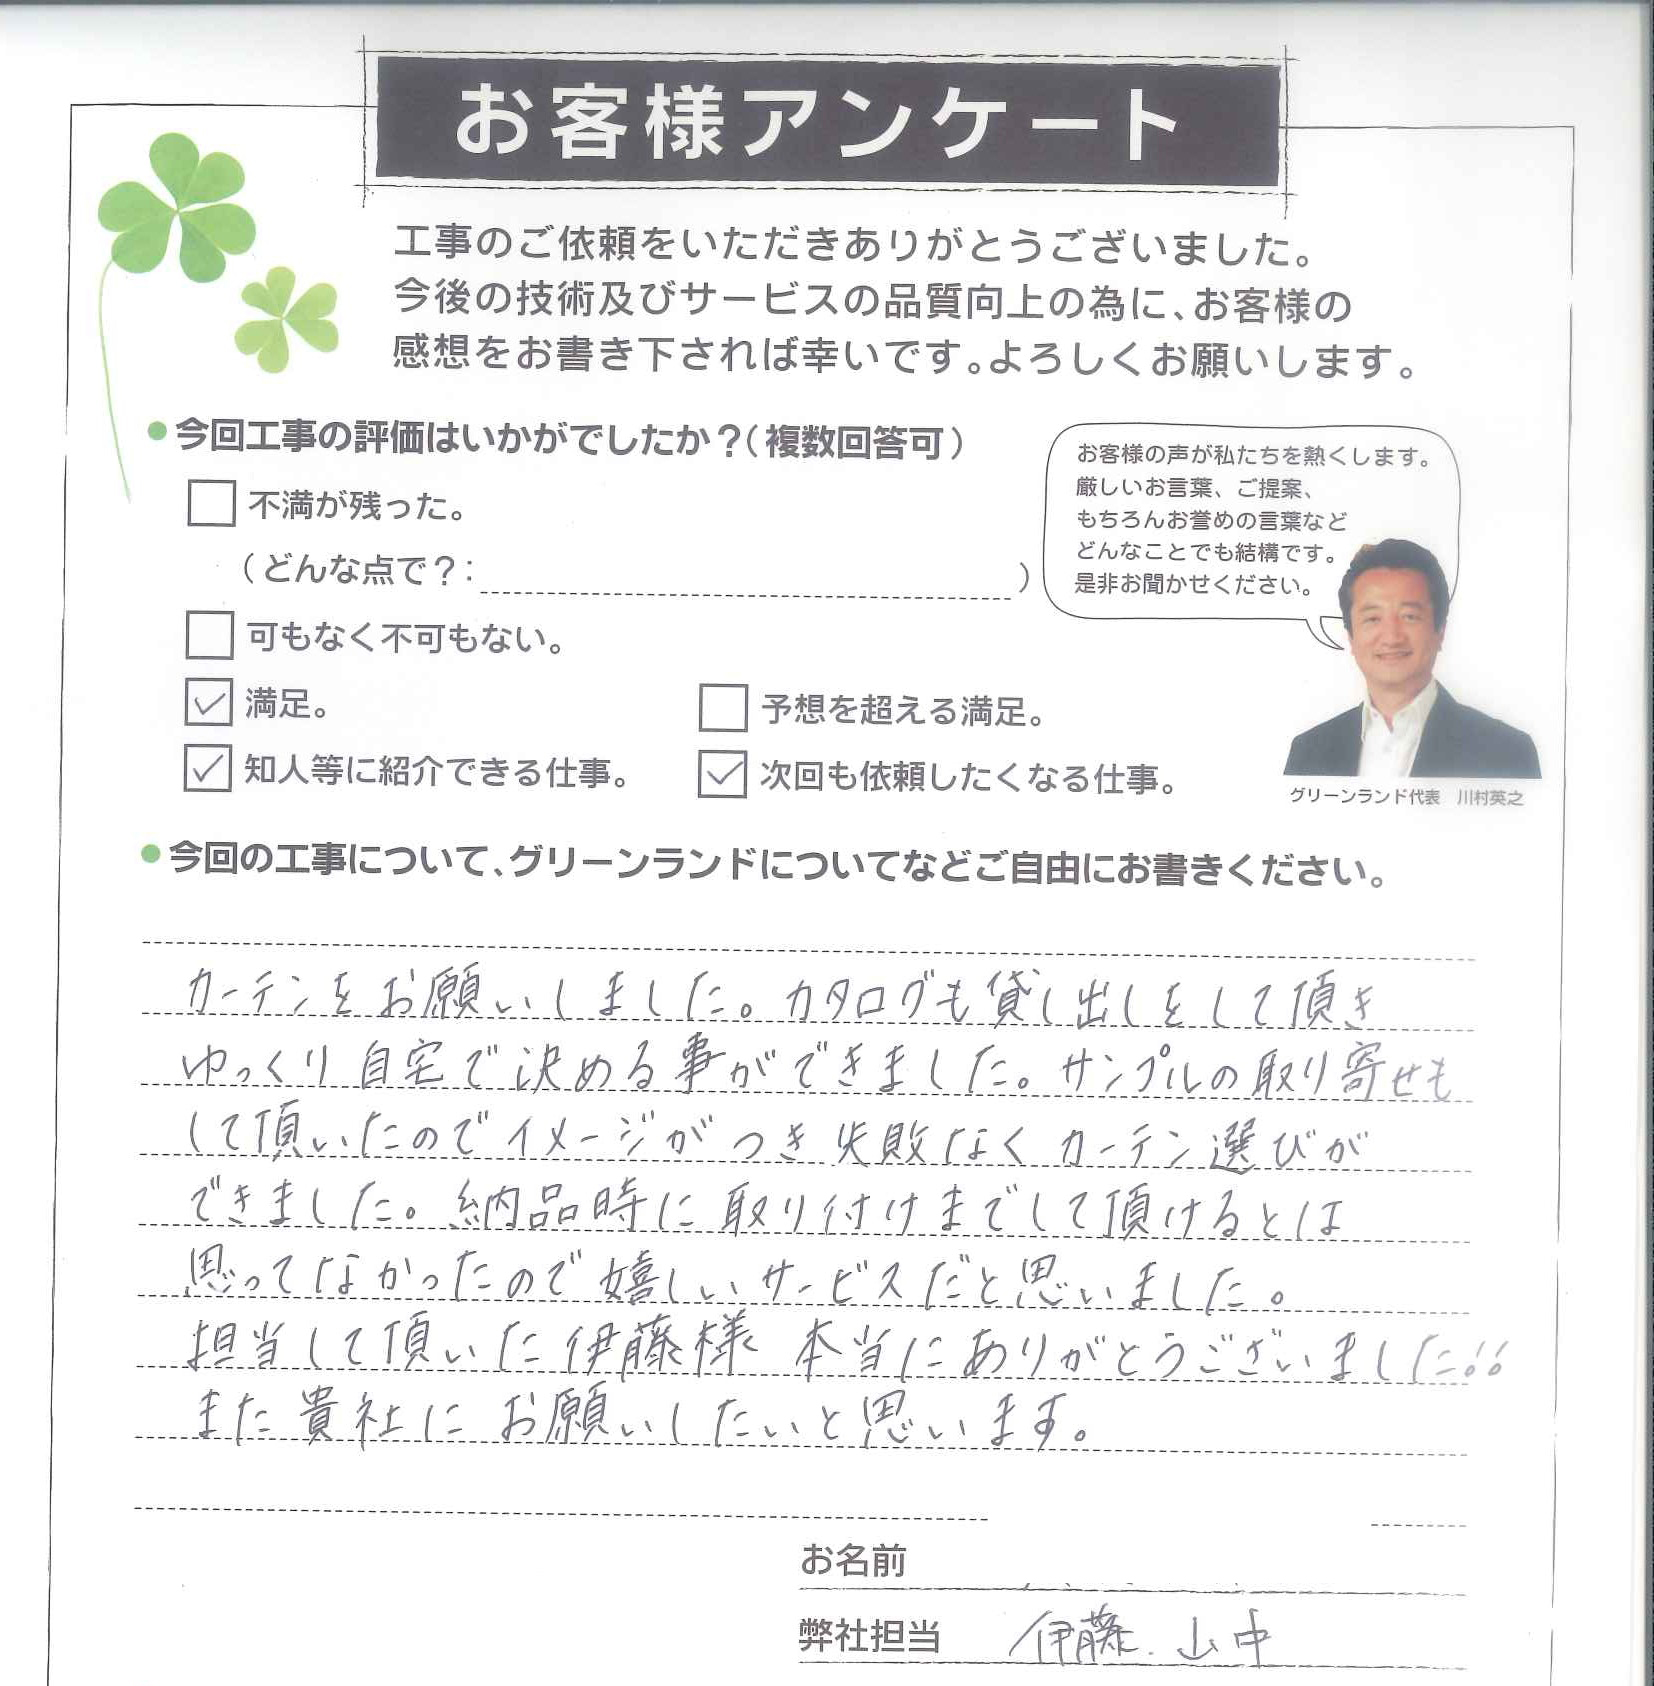 お客様アンケート
工事のご依頼をいただきありがとうございました。
今後の技術及びサービスの品質向上の為に、お客様の
感想をお書き下されば幸いです。よろしくお願いします。
今回工事の評価はいかがでしたか？（複数回答可）
不満が残った。
（どんな点で？： ）
可もなく不可もない。
満足。
予想を超える満足。
知人等に紹介できる仕事。
次回も依頼したくなる仕事。
お客様の声が私たちを熱くします。
厳しいお言葉、ご提案、
もちろんお誉めの言葉など
どんなことでも結構です。
是非お聞かせください。
グリーンランド代表 川村英之
今回の工事について、グリーンランドについてなどご自由にお書きください。
カーテンをお願いしました。カタログも貸し出しをして頂き
ゆっくり自宅で決める事ができました。サンプルの取り寄せも
して頂いたのでイメージがつき失敗なくカーテン選びが
できました。納品時に取り付けまでして頂けるとは
思ってなかったので嬉しいサービスだと思いました。
担当して頂いた伊藤様 本当にありがとうございました!!
また貴社にお願いしたいと思います。
お名前
弊社担当 伊藤.山中